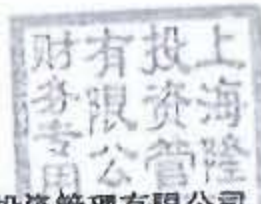 上海隆
投资管
有限公
财务专用
投资管理有限公司